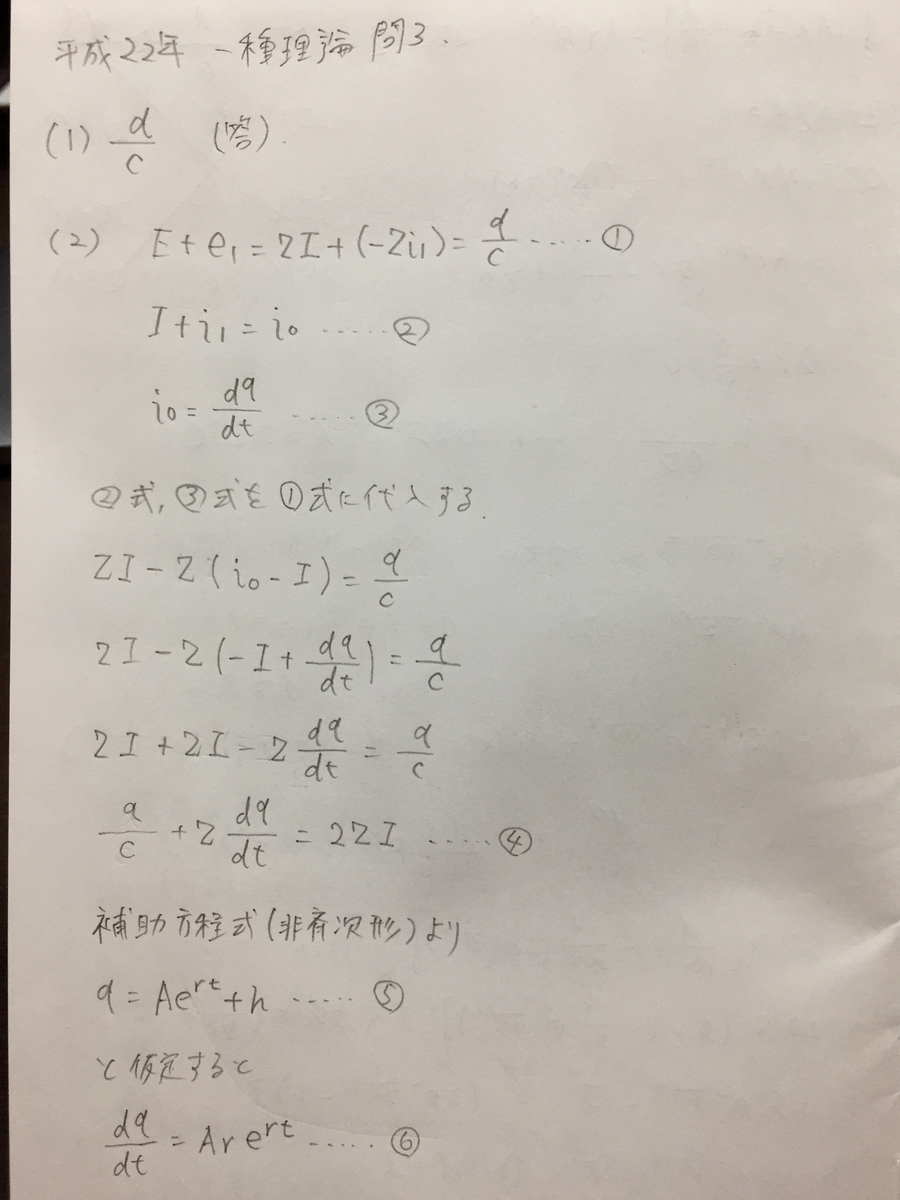 平成22年 一種理論 問3.
(1) q/c (答).
(2) E+e₁=ZI+(-Zi₁)=q/c ‥‥‥ ①
I+i₁=i₀ ‥‥‥ ②
i₀=dq/dt ‥‥‥ ③
②式,③式を①式に代入する.
ZI-Z(i₀-I)=q/c
ZI-Z(-I+dq/dt)=q/c
ZI+ZI-Z dq/dt=q/c
q/c+Z dq/dt=2ZI ‥‥‥ ④
補助方程式(非斉次形)より
q=Ae^rt+h ‥‥‥ ⑤
と仮定すると
dq/dt=Are^rt ‥‥‥ ⑥